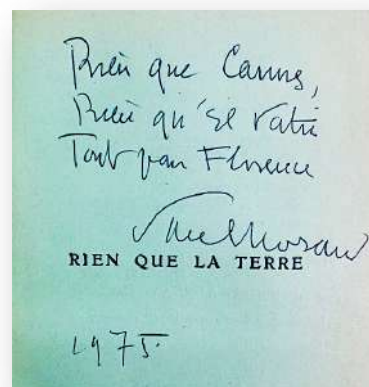 Rien que Cannes,
Rien qu'
Tout pour Florence
Paul Morand
RIEN QUE LA TERRE
1975.